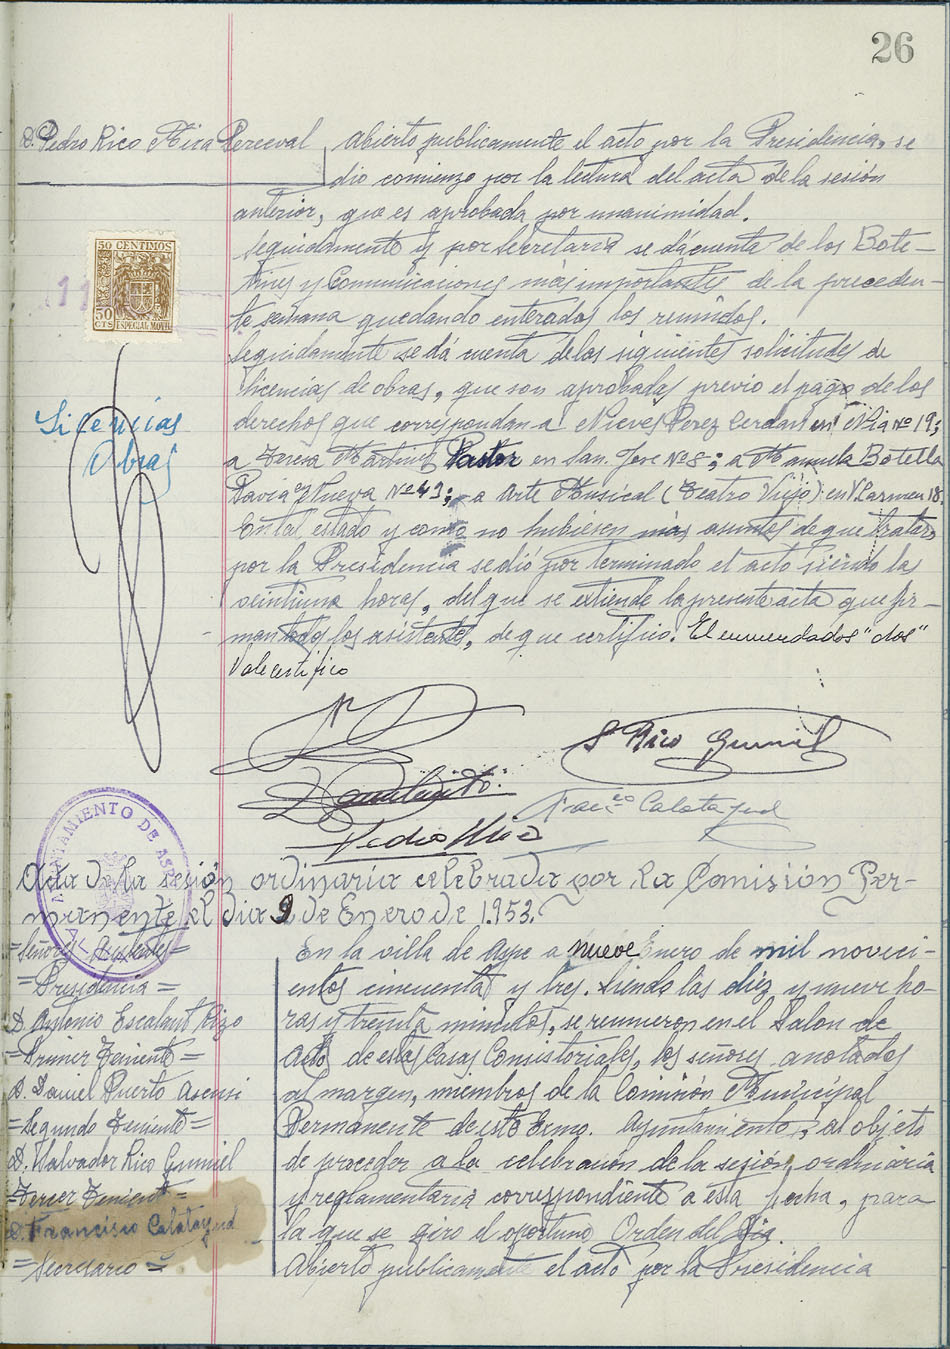 26
D. Pedro Rico Mira Perceval
Abierto publicamente el acto por la Presidencia, se
dio comienzo por la lectura del acta de la sesión
anterior, que es aprobada por unanimidad.
Seguidamente y por Secretaria se dá cuenta de los Bole-
tines y Comunicaciones más importantes de la preceden-
te semana quedando enterados los reunidos.
50 CENTIMOS
50 CTS
ESPECIAL MOVIL
Licencias
Obras
Seguidamente se dá cuenta de las siguientes solicitudes de
licencias de obras, que son aprobadas previo el pago de los
derechos que correspondan a Nieves Perez Cerdan en Nº 19;
a Teresa Martinez Pastor en San Jose Nº 8; a Manuela Botella
Pavia en Nueva Nº 43; a Arte Musical (Teatro Viejo) en V. Carmen 18.
En tal estado y como no hubiesen más asuntos de que tratar,
por la Presidencia se dió por terminado el acto siendo las
veintiuna horas, del que se extiende la presente acta que fir-
man todos los asistentes, de que certifico. El enmendados "dos"
Vale certifico
S Rico Gumiel
Franco Calatayud
Pedro Rico
AYUNTAMIENTO DE ASPE
Acta de la sesión ordinaria celebrada por la Comisión Per-
manente el dia 9 de Enero de 1.953.
=Señores Asistentes=
=Presidencia=
D. Antonio Escalant Rizo
=Primer Teniente=
D. Daniel Puerto Asensi
=Segundo Teniente=
D. Salvador Rico Gumiel
=Tercer Teniente=
D. Francisco Calatayud
=Secretario=
En la villa de Aspe a nueve Enero de mil noveci-
entos cincuenta y tres. Siendo las diez y nueve ho-
ras y treinta minutos, se reunieron en el Salon de
Actos de estas Casas Consistoriales, los señores anotados
al margen, miembros de la Comisión Municipal
Permanente de este Exmo. Ayuntamiento, al objeto
de proceder a la celebración de la sesión ordinaria
y reglamentaria correspondiente a esta fecha, para
la que se giro el oportuno Orden del Dia.
Abierto publicamente el acto por la Presidencia